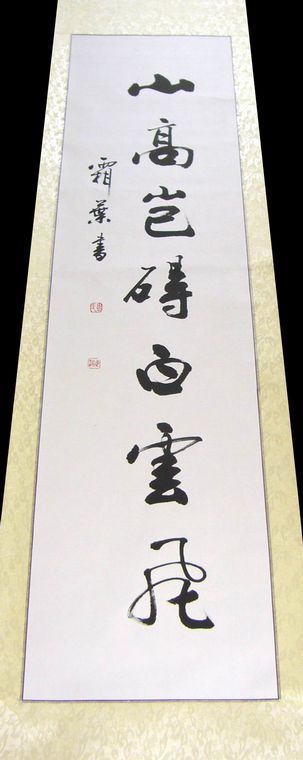 山高豈礙白雲飛
霜葉書